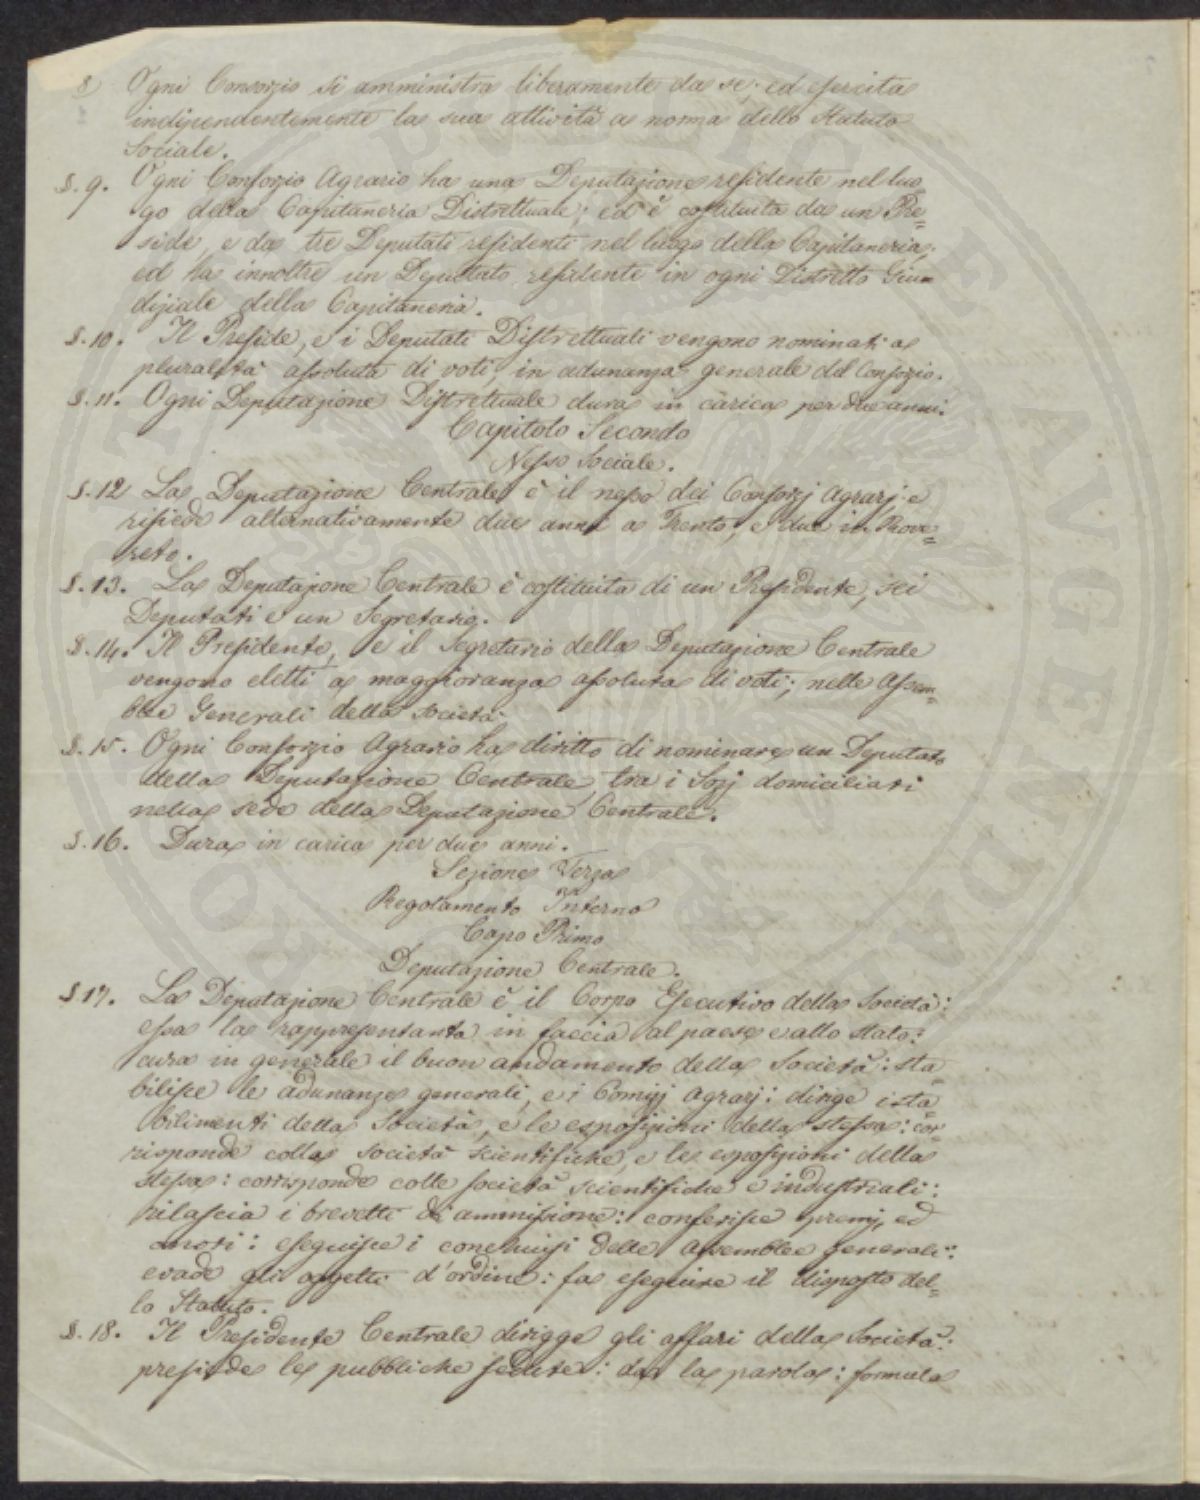 8 Ogni Consorzio si amministra liberamente da se, ed esercita
indipendentemente la sua attività a norma dello Statuto
Sociale.
§. 9. Ogni Consorzio Agrario ha una Deputazione residente nel luo=
go della Capitaneria Distrettuale; ed è costituita da un Pre=
side, e da tre Deputati residenti nel luogo della Capitaneria;
ed ha innoltre un Deputato residente in ogni Distretto Giu=
diziale della Capitaneria.
§. 10. Il Preside, e i Deputati Distrettuali vengono nominati a
pluralità assoluta di voti, in adunanza generale del Consorzio.
§. 11. Ogni Deputazione Distrettuale dura in carica per due anni.
Capitolo Secondo
Nesso Sociale.
§. 12 La Deputazione Centrale è il nesso dei Consorzj Agrarj e
risiede alternativamente due anni a Trento, e due in Rove=
reto.
§. 13. La Deputazione Centrale è costituita di un Presidente, sei
Deputati e un Segretario.
§. 14. Il Presidente, e il Segretario della Deputazione Centrale
vengono eletti a maggioranza assoluta di voti; nelle Assem=
blee Generali della Società.
§. 15. Ogni Consorzio Agrario ha diritto di nominare un Deputato
della Deputazione Centrale, tra i Sozj domiciliati
nella sede della Deputazione Centrale.
§. 16. Dura in carica per due anni.
Sezione Terza
Regolamento Interno
Capo Primo
Deputazione Centrale.
§ 17. La Deputazione Centrale è il Corpo Esecutivo della Società:
essa la rappresentanta in faccia al paese e allo Stato:
cura in generale il buon andamento della Società: sta=
bilisce le adunanze generali, e i Comizj Agrarj: dirige i sta=
bilimenti della Società, e le esposizioni della stessa: cor=
risponde colla Società scientifiche, e le esposizioni della
stessa: corrisponde colle società scientifiche e industriali:
rilascia i brevetti di ammissione: conferisce premj, ed
onori: eseguisce i conchiusi delle Assemblee generali:
evade gli oggetti d'ordine: fa eseguire il disposto del=
lo Statuto.
§. 18. Il Presidente Centrale dirigge gli affari della Società:
presiede le pubbliche sedute: da la parola: formula